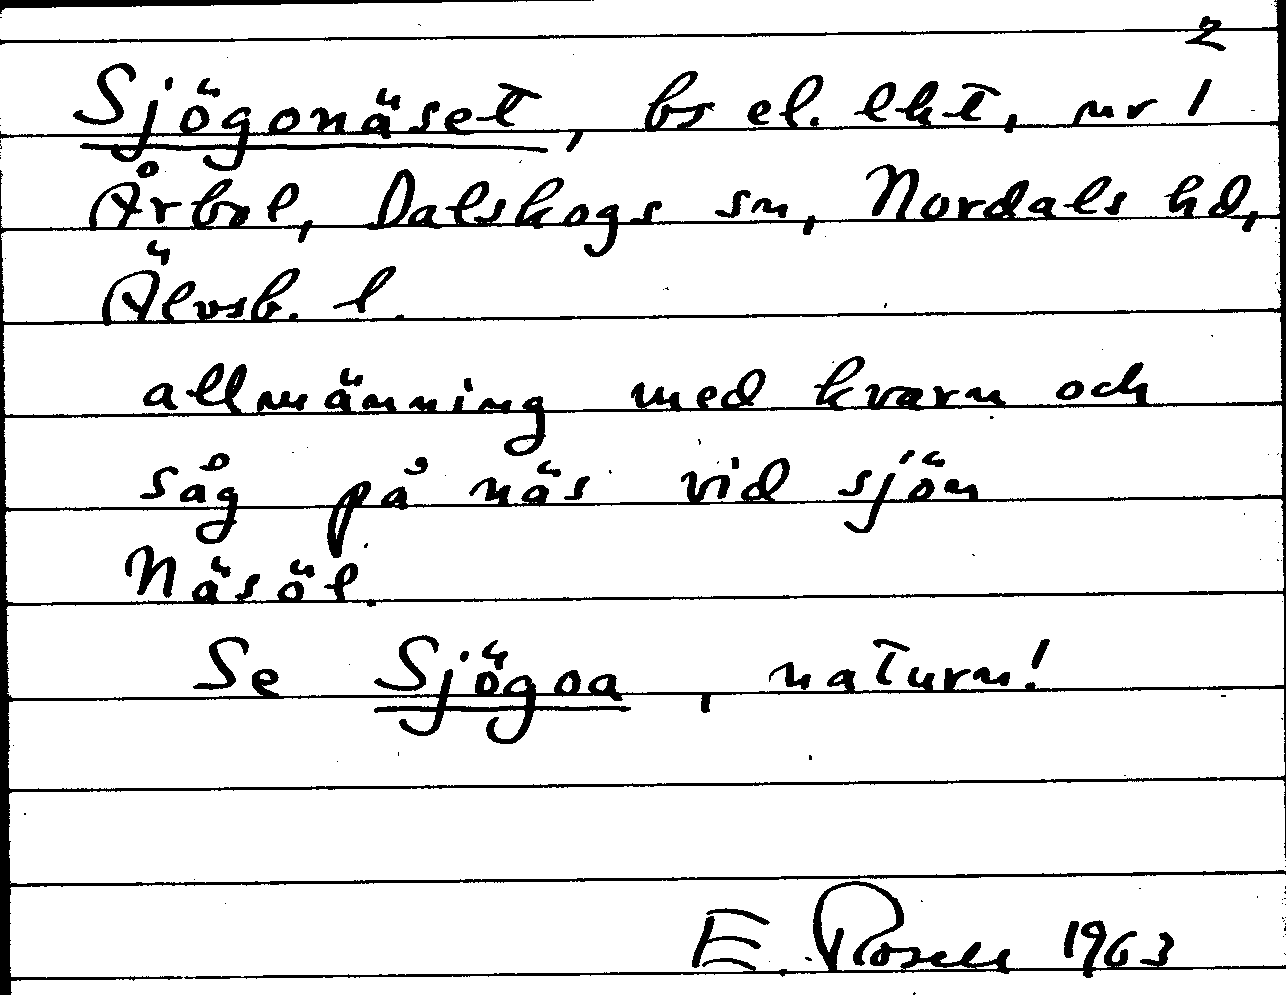 2
Sjögonäset, bs el. lht, nr 1
Årbol, Dalskogs sn, Nordals hd,
Älvsb. l.
allmänning med kvarn och
såg på näs vid sjön
Näsöl.
Se Sjögoa, naturn!
E. Rosell 1963